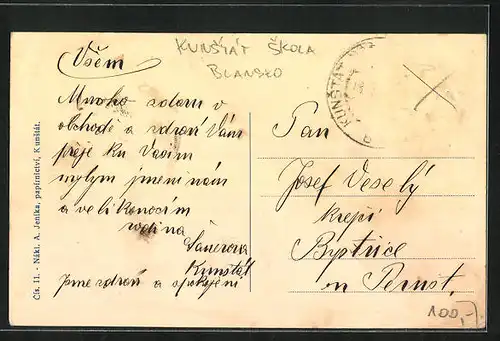 KUNŠTÁT ŠKOLA
BLANSKO
Všem
Mnoho zdaru v
obchodě a zdraví Vám
přeje ku Vašim
mylym jmeninám
a velikonocím
rodina
Kunštát
Jsme zdrávi a spokojeni
Pan
Josef Veselý
krejčí
Bystřice
n Pernšt.
KUNŠTÁT
100,-
Čís. 11. - Nákl. A. Jenika, papírnictví, Kunštát.